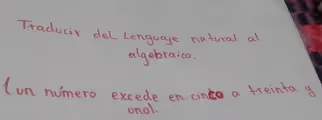 Traducir del Lenguaje natural al
algebraico.
(un número excede en cinco a treinta y
uno).